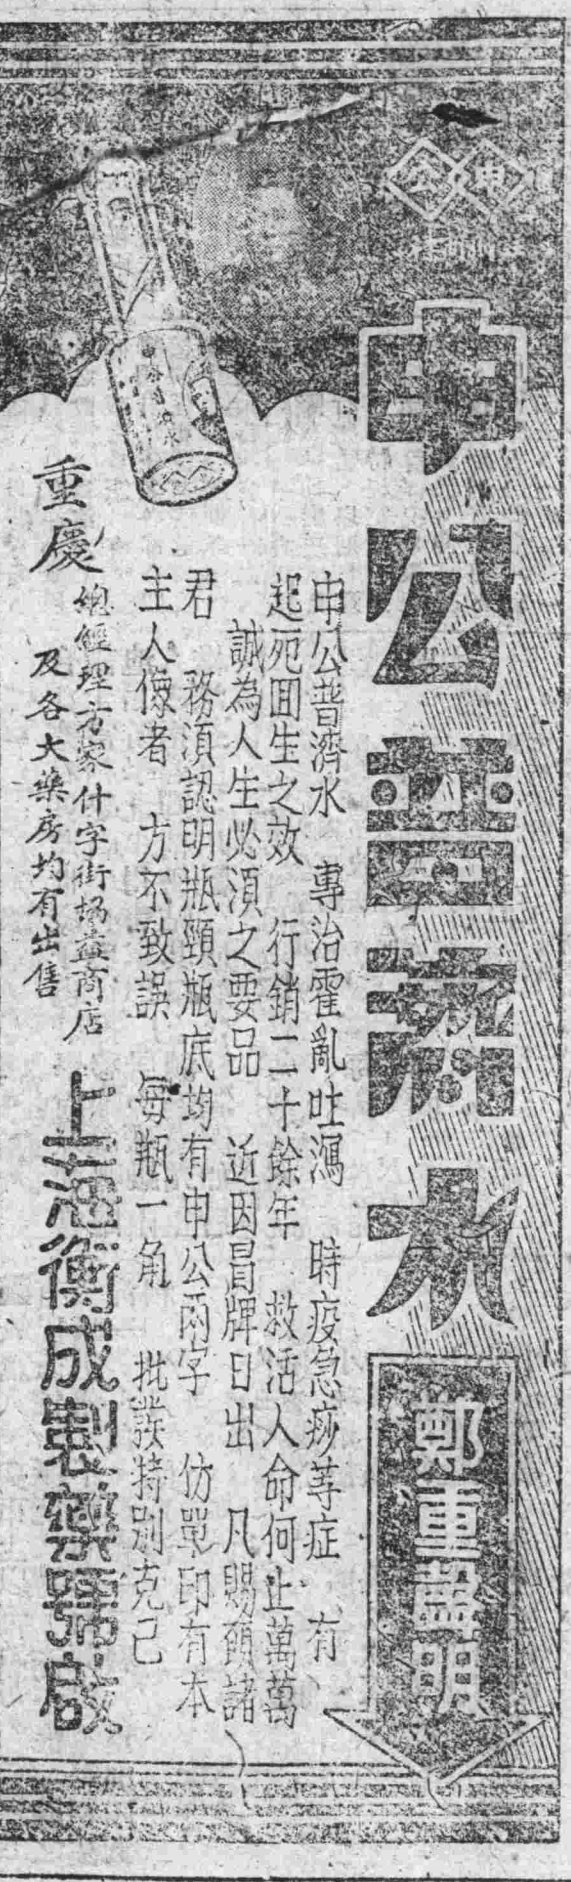 申公
申公普濟水
鄭重聲明
申公普濟水　專治霍亂吐瀉　時疫急痧等症　有
起死回生之效　行銷二十餘年　救活人命何止萬萬
誠為人生必須之要品　近因冒牌日出　凡賜顧諸
君　務須認明瓶頸瓶底均有申公兩字　仿單印有本
主人像者　方不致誤　每瓶一角　批發特別克己
重慶
總經理方家什字街楊益商店
及各大藥房均有出售
上海衡成製藥號啟